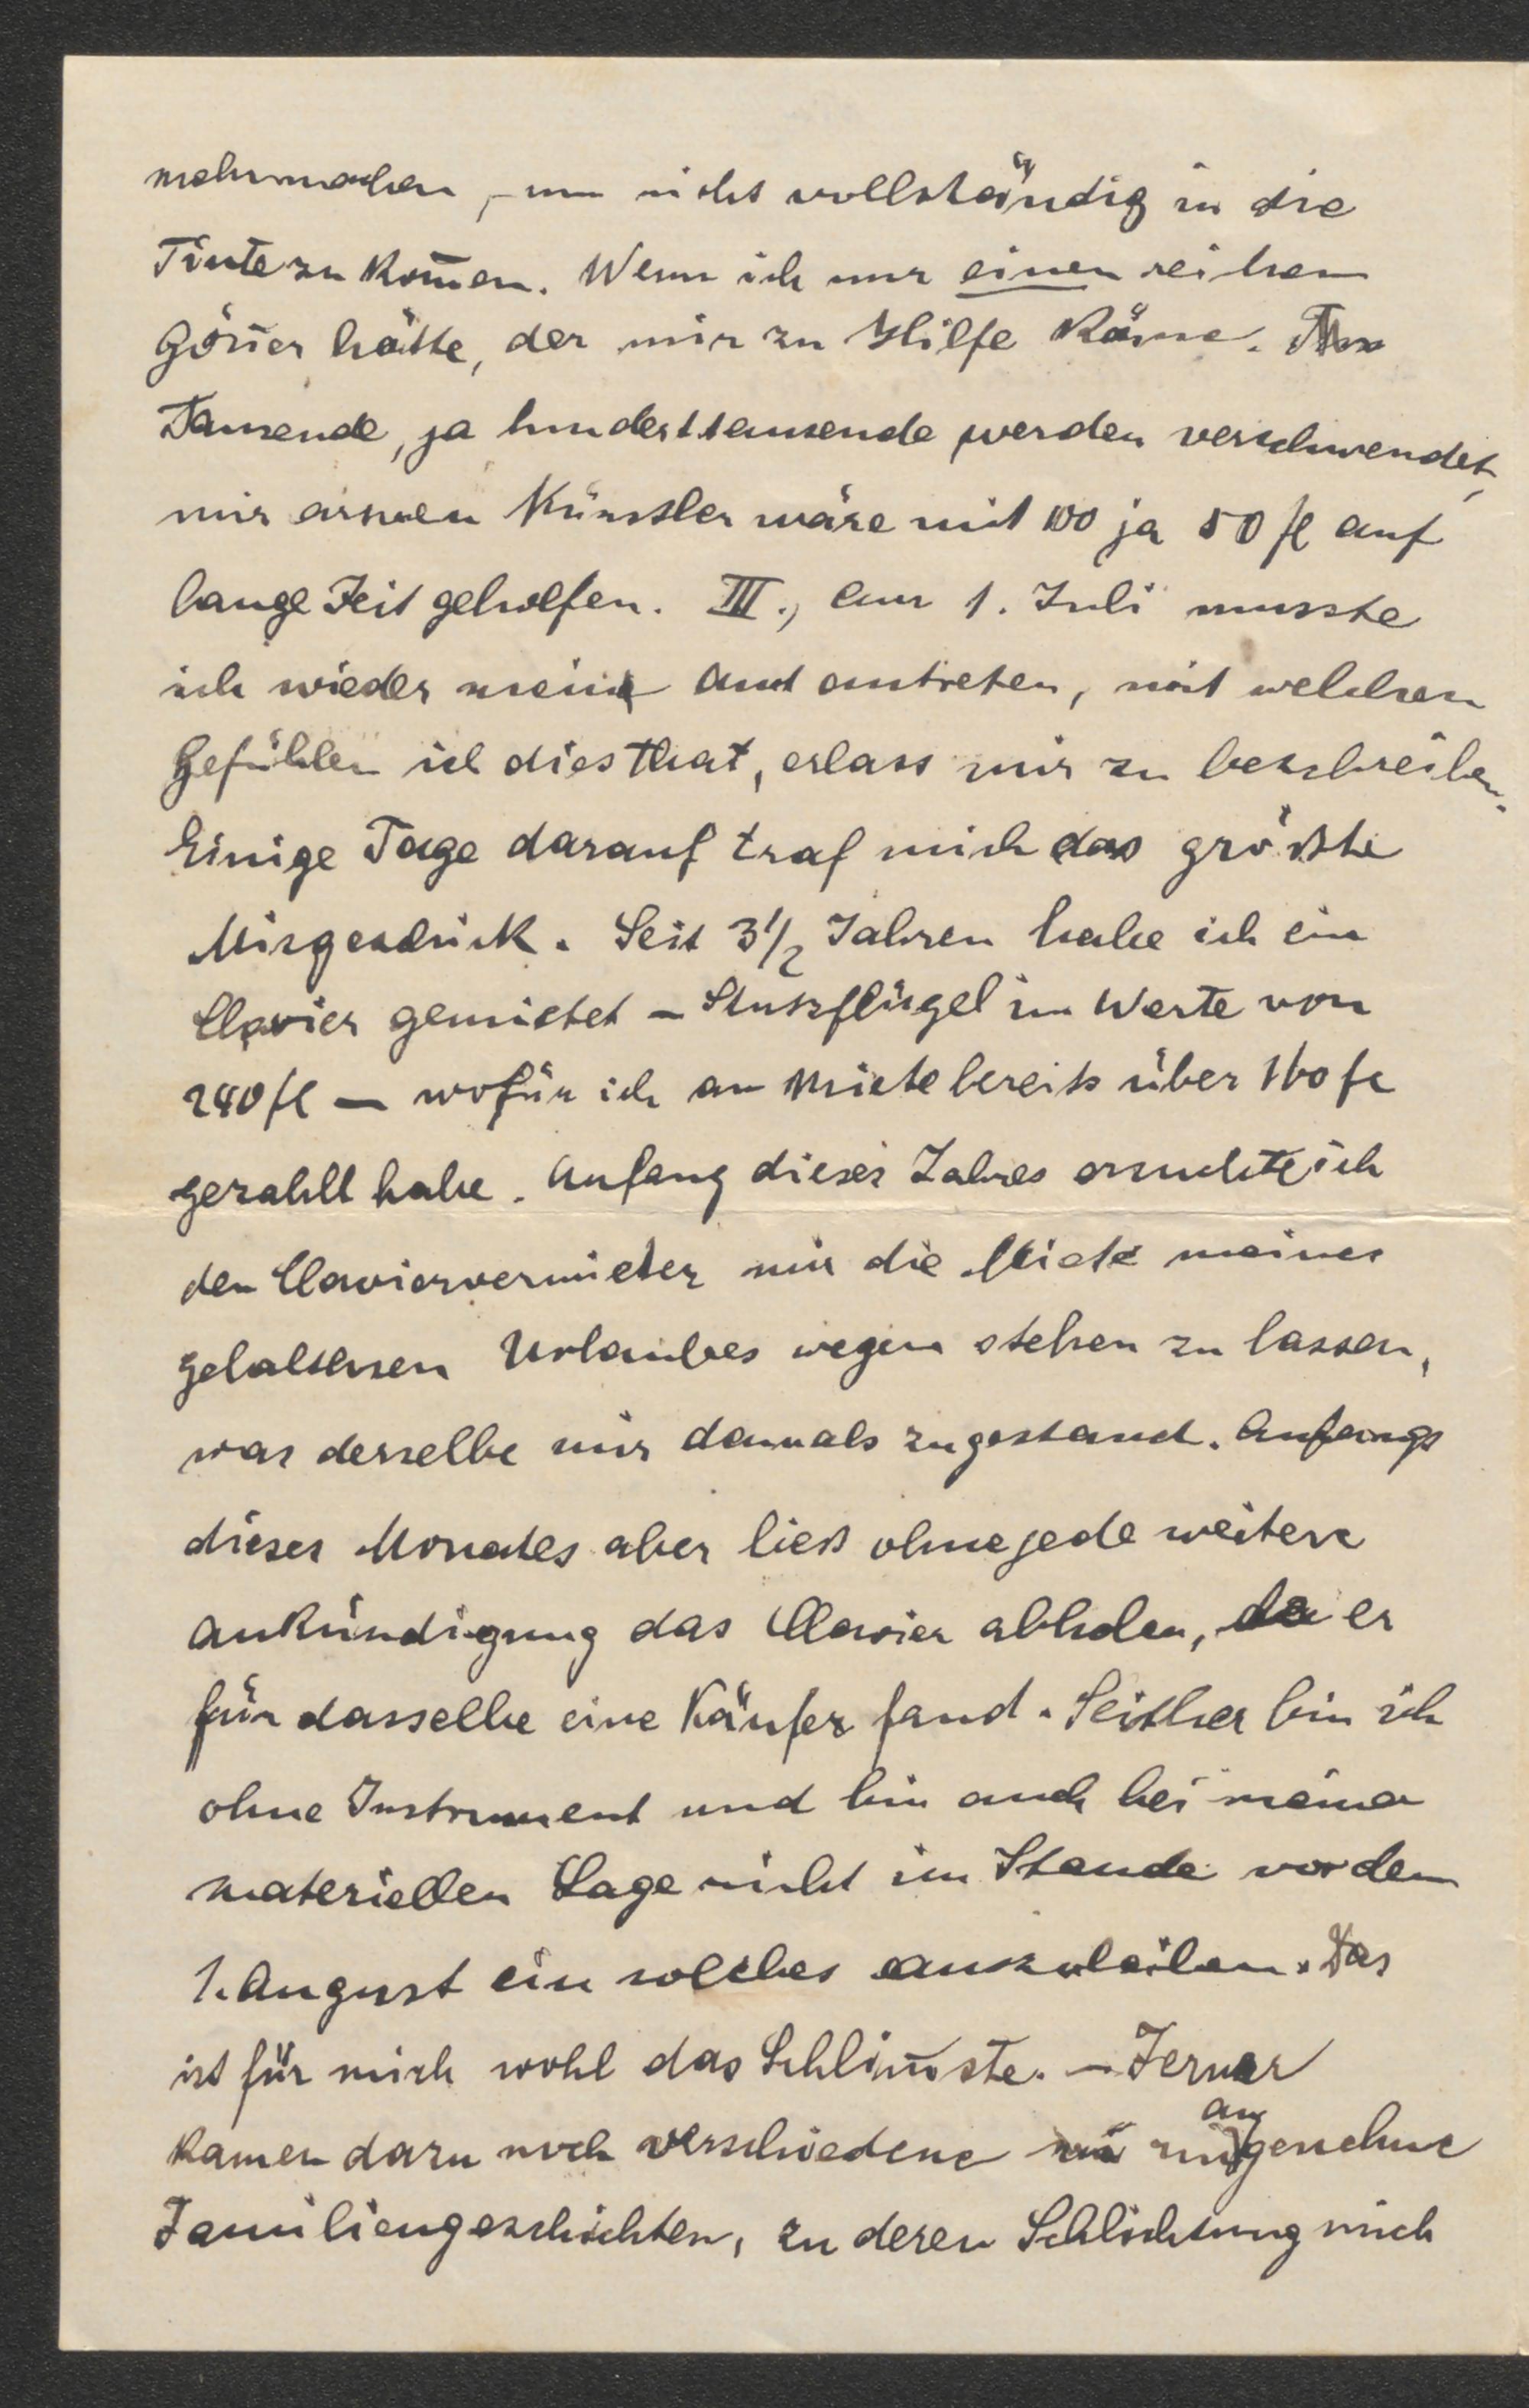 mehrmachen, um nicht vollständig in die
Tinte zu kom̄en. Wenn ich nur einen reichen
Gön̄er hätte, der mir zu Hilfe käme.
Tausende, ja hunderttausende werden verschwendet,
mir armen Künstler wäre mit 100 ja 50 fl auf
lange Zeit geholfen. III., am 1. Juli musste
ich wieder mein Amt antreten, mit welchen
Gefühlen ich dies that, erlass mir zu beschreiben.
Einige Tage darauf traf mich das größte
Misgeschick. Seit 3 1/2 Jahren habe ich ein
Clavier gemietet – Stutzflügel im Werte von
240 fl – wofür ich an Miete bereits über 160 fl
gezahlt habe. Anfang dieses Jahres ersuchte ich
den Claviervermieter mir die Miete meines
gehaltlosen Urlaubes wegen stehen zu lassen,
was derselbe mir damals zugestand. Anfangs
dieses Monates aber ließ ohne jede weitere
Ankündigung das Clavier abholen, da er
für dasselbe eine Käufer fand. Seither bin ich
ohne Instrument und bin auch bei meiner
materiellen Lage nicht im Stande vor dem
1. August ein solches auszuleihen. Das
ist für mich wohl das Schlim̄ste. – Ferner
kamen dazu noch verschiedene unangenehme
Familiengeschichten, zu deren Schlichtung mich